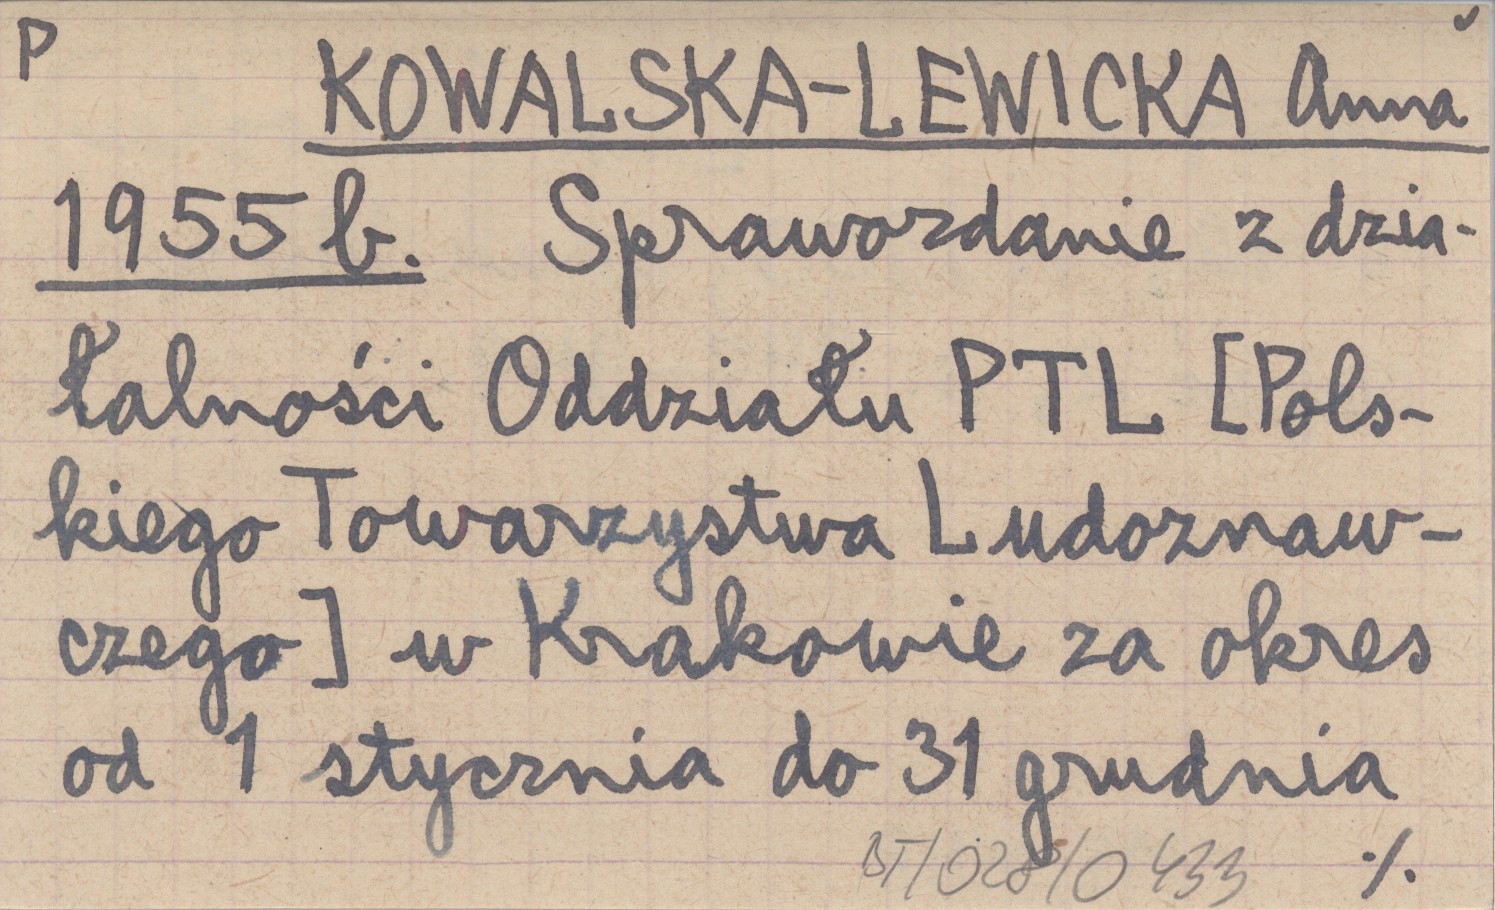 P
KOWALSKA-LEWICKA Anna
1955 b. Sprawozdanie z dzia-
łalności Oddziału PTL [Pols-
kiego Towarzystwa Ludoznaw-
czego] w Krakowie za okres
od 1 stycznia do 31 grudnia
BT/028/0433 ./.